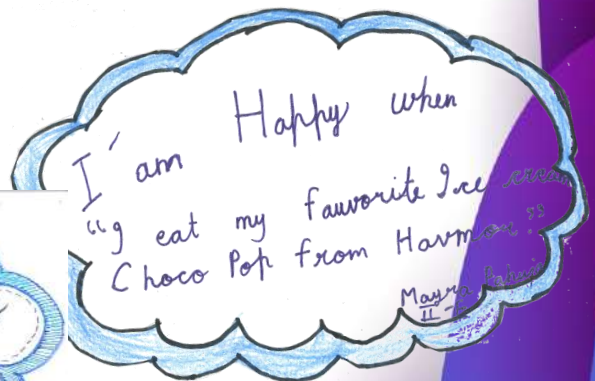 I'am Happy when
"I eat my fauvorite Ice cream
Choco Pop from Havmor."
Mayra
II